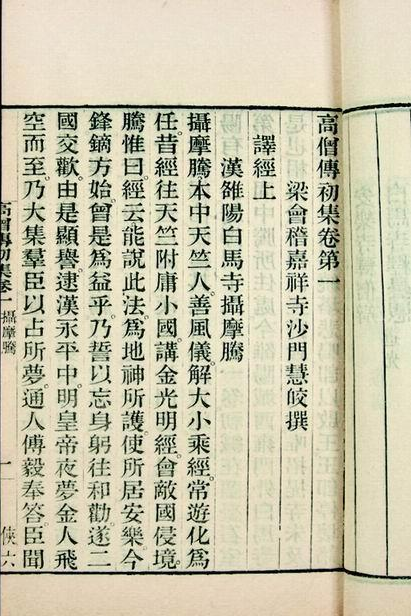 高僧傳初集卷第一
梁會稽嘉祥寺沙門慧皎撰
譯經上
漢雒陽白馬寺攝摩騰
攝摩騰本中天竺人。善風儀。解大小乘經。常遊化爲
任。昔經往天竺附庸小國。講金光明經。會敵國侵境。
騰惟曰。經云能說此法。爲地神所護。使所居安樂。今
鋒鏑方始。曾是爲益乎。乃誓以忘身。躬往和勸。遂二
國交歡。由是顯譽。逮漢永平中。明皇帝夜夢金人飛
空而至。乃大集羣臣。以占所夢。通人傅毅奉答。臣聞
高僧傳初集卷一 攝摩騰 一 俠六